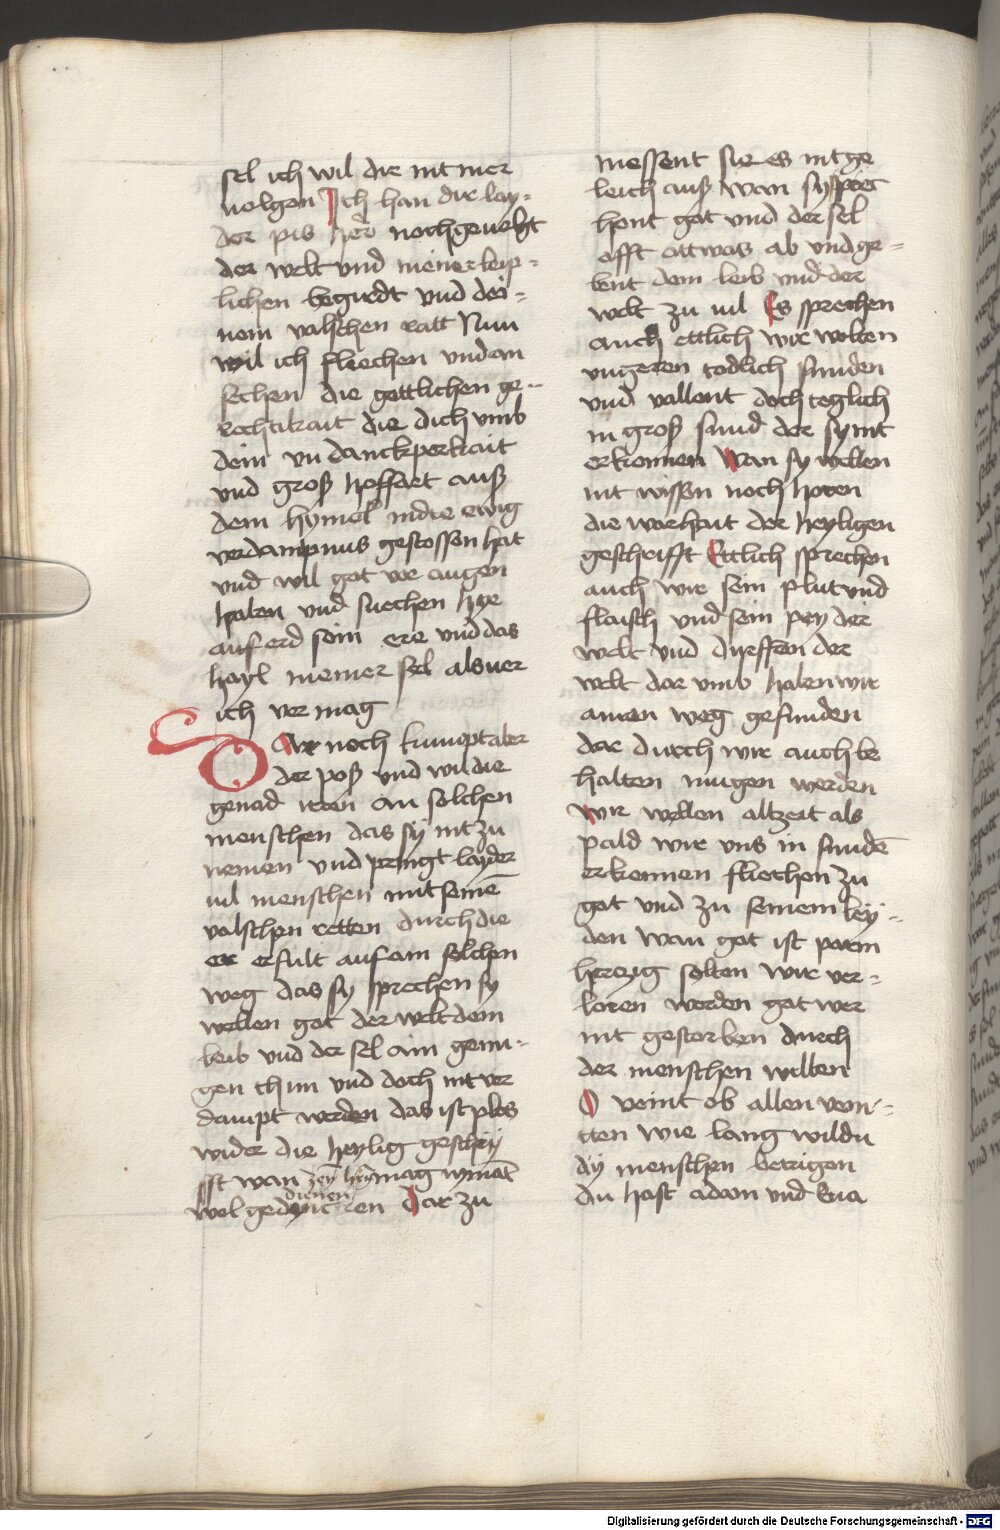 sel ich wil dir nit mer
volgen Ich han dir lay-
der pis her nochgeuelgt
der welt vnd meiner leip-
lichen begierdt vnd dei-
nem valschen ratt Nun
wil ich fliechen vnd an
sechen die gottlichen ge-
rechtikait die dich vmb
dein vndanckperkait
vnd groß hoffart auß
dem hymel in die ewig
verdampnus gestossen hat
vnd wil got vor augen
haben vnd suechen hye
auf erd sein ere vnd das
hayl meiner sel als uer
ich vermag
Dar noch kumpt aber
der poß vnd wil die
genad irren an solchen
menschen das sy nit zu
nemen vnd pringt layder
uil menschen mit seinē
valschen retten durch die
er erfult auf ain solchen
weg das sy sprechen sy
wellen got der welt dem
leib vnd der sel ain genu-
gen thun vnd doch nit ver
dampt werden das ist plos
wider die heylig geschri
fft wan zwey hern mag nymāt
wol gedienen Dar zu
messent sie es nit ge
leich auß wan sy prec
hent got vnd der sel
offt ettwas ab vnd ge-
bent dem leib vnd der
welt zu uil Es sprechen
auch ettlich wir wolten
vngeren todlich sunden
vnd vallent doch teglich
in groß sund der sy nit
erkennen Wan sy wellen
nit wissen noch horen
die worhait der heyligen
geschrifft Ettlich sprechen
auch wir sein plut vnd
flaisch vnd sein pey der
welt vnd durffen der
welt dar vmb haben wir
ainen weg gefunden
dar durch wir auch be
halten mugen werden
wir wellen altzeit als
pald wir vns in sundē
erkennen fliechen zu
got vnd zu seinem ley-
den wan got ist parm
herczig solten wir ver-
loren werden got wer
nit gestorben durch
der menschen willen
O veint ob allen vein-
tten wie lang wildu
dy menschen betrigen
du hast adam vnd eua
Digitalisierung gefördert durch die Deutsche Forschungsgemeinschaft - DFG